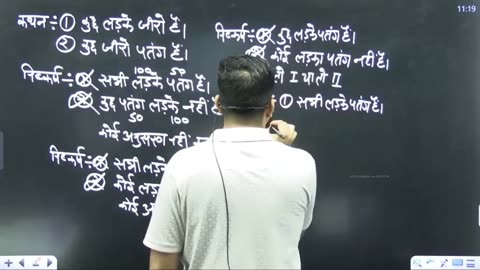 कथन÷ ① कुछ लड़के जीरो हैं।
② कुछ जीरो पतंग हैं।
100 50
निष्कर्ष÷ ① सभी लड़के पतंग हैं।
② कुछ पतंग लड़के नहीं
50 100
कोई अनुसरण नहीं
निष्कर्ष÷ ① सभी लड़के
② कोई लड़का
कोई
11:19
निष्कर्ष÷ ① कुछ लड़के पतंग हैं।
② कोई लड़का पतंग नहीं है।
I या तो II
① सभी लड़के पतंग हैं।